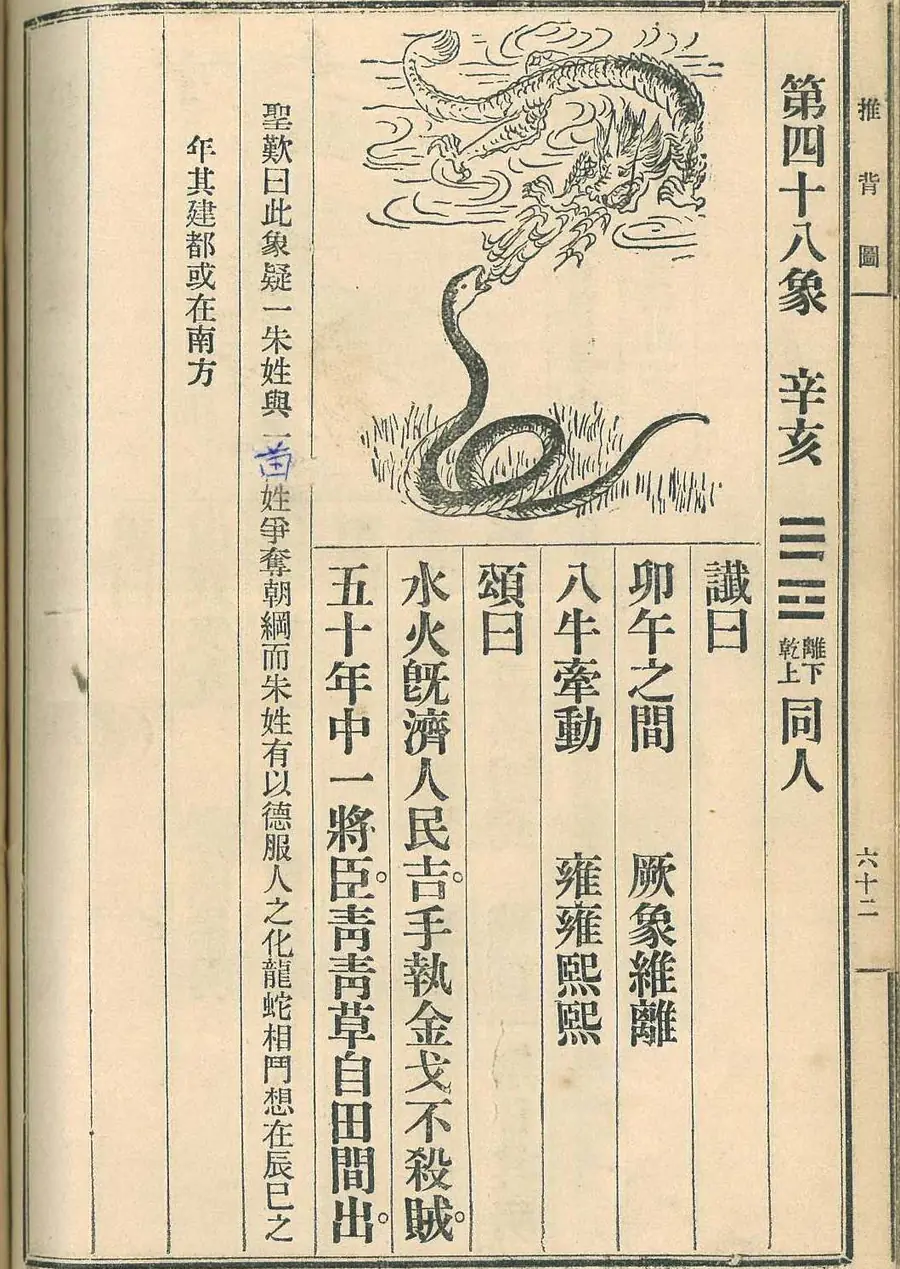 推背圖
六十二
第四十八象 辛亥 離下乾上 同人
讖曰
卯午之間 厥象維離
八牛牽動 雍雍熙熙
頌曰
水火旣濟人民吉。手執金戈不殺賊。
五十年中一將臣。靑靑草自田間出。
聖歎曰此象疑一朱姓與一苗姓爭奪朝綱而朱姓有以德服人之化龍蛇相鬥想在辰巳之
年其建都或在南方